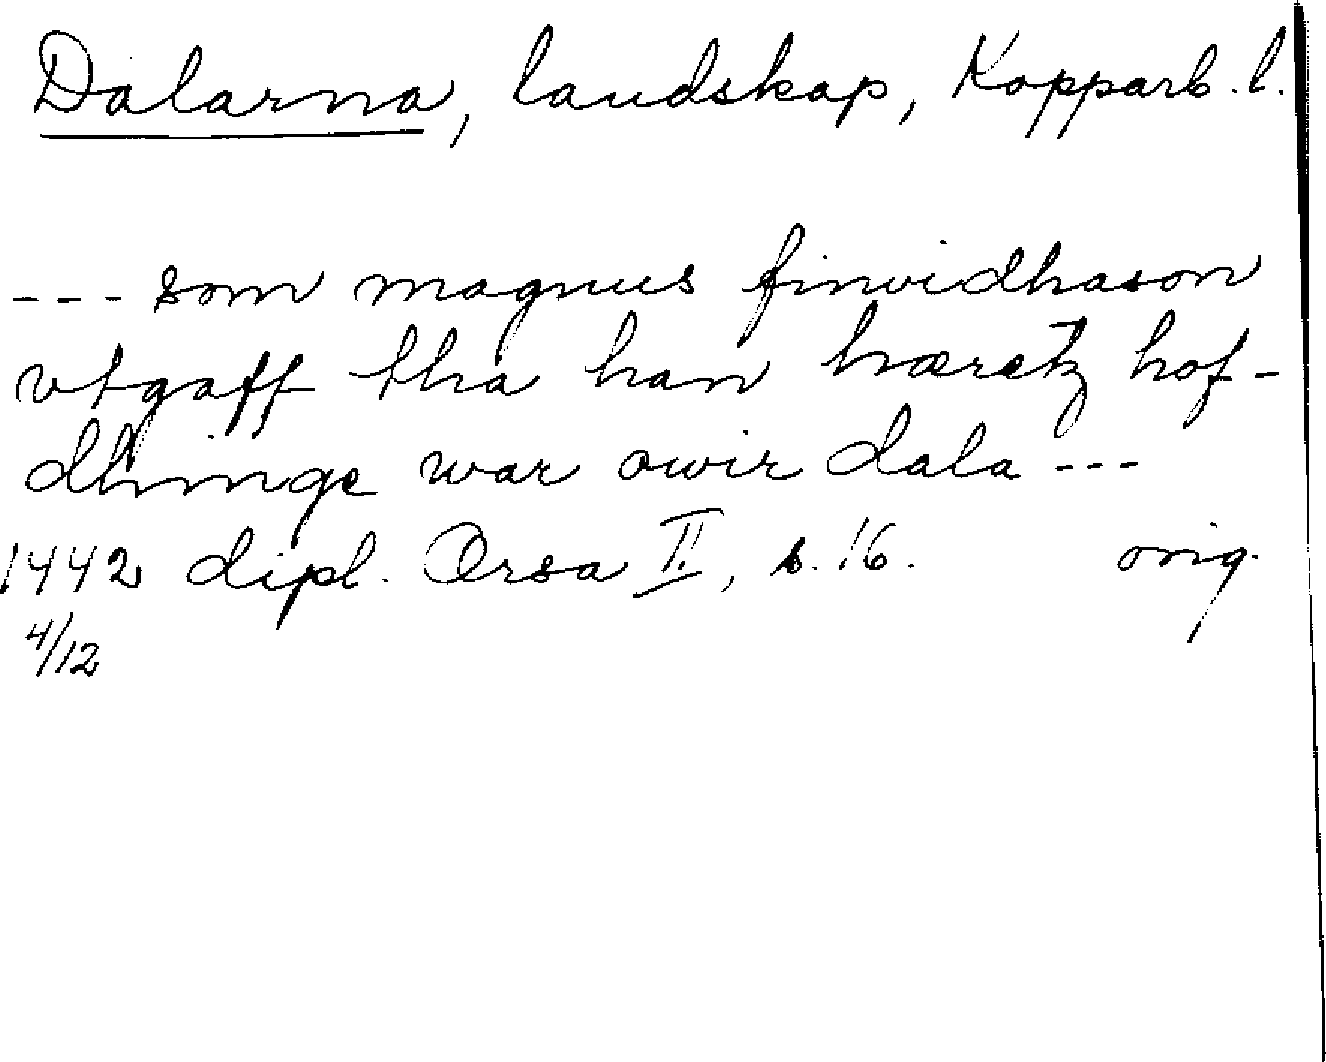 Dalarna, landskap, Kopparb. l.
--- som magnus finvidhason
vtgaff tha han hæretz hof-
dhinge war owir dala ---
1442 dipl. Orsa II, s. 16. orig.
4/12